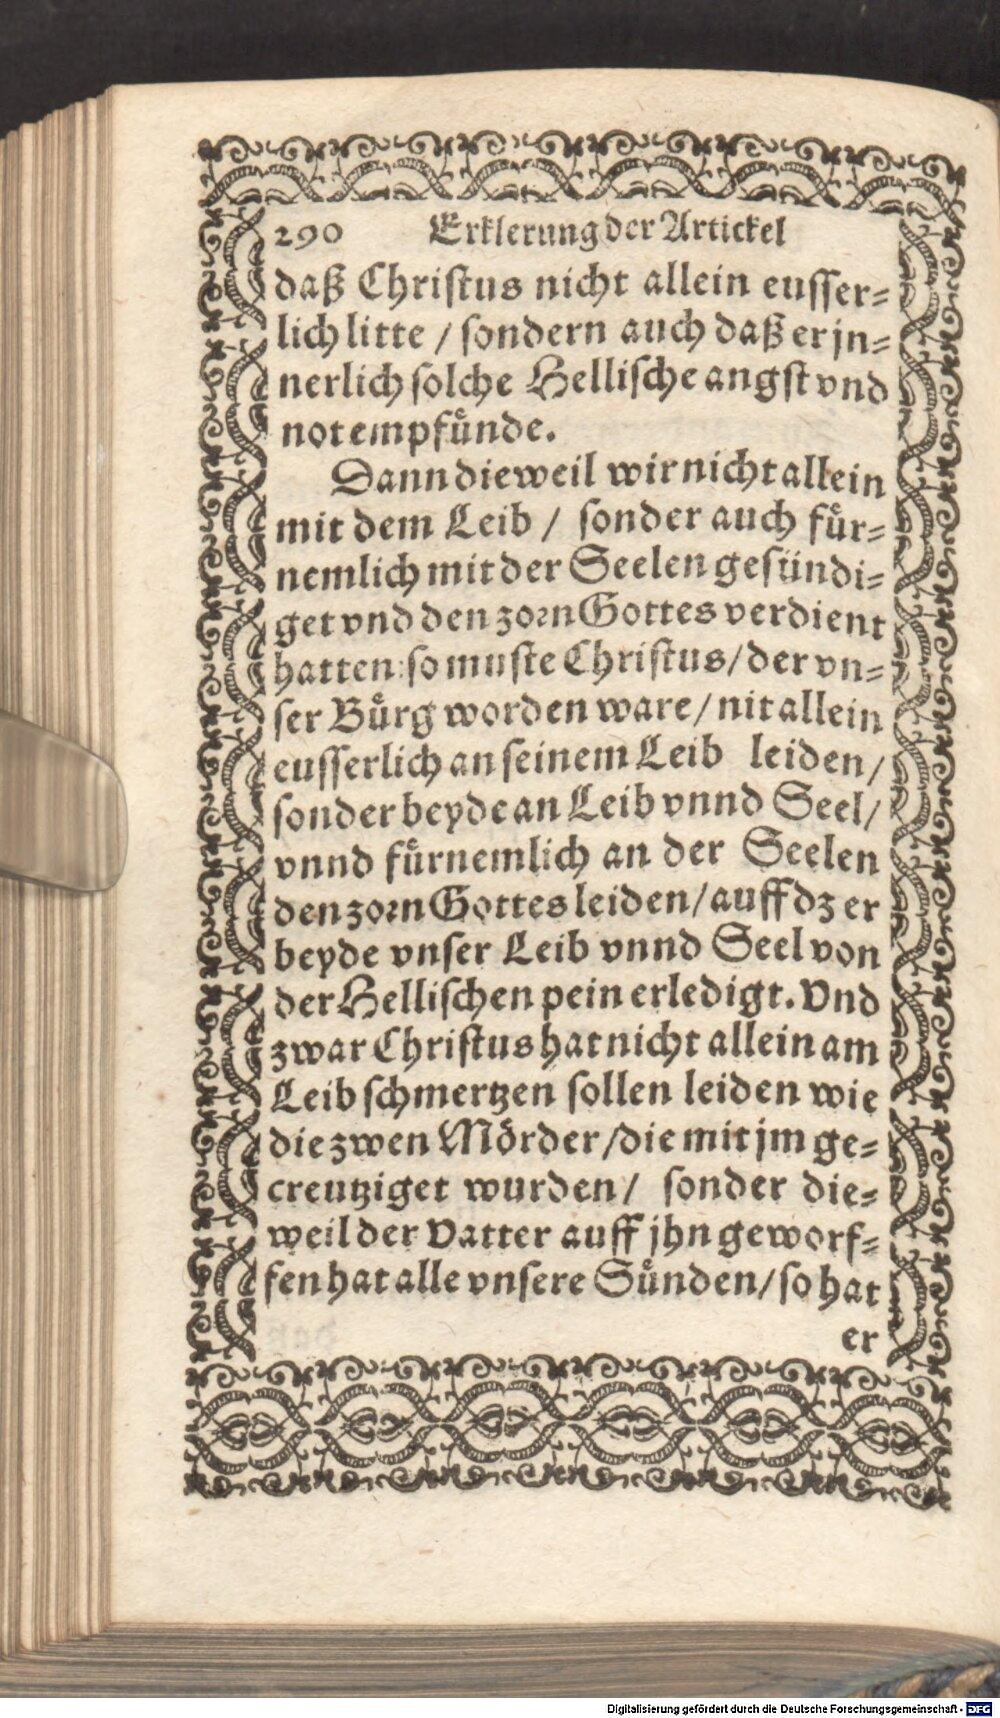 290 Erklerung der Artickel
daß Christus nicht allein eusser⸗
lich litte / sondern auch daß er jn⸗
nerlich solche Hellische angst vnd
not empfuͤnde.
Dann dieweil wir nicht allein
mit dem Leib / sonder auch fuͤr⸗
nemlich mit der Seelen gesündi⸗
get vnd den zorn Gottes verdient
hatten: so muste Christus / der vn⸗
ser Buͤrg worden ware / nit allein
eusserlich an seinem Leib leiden /
sonder beyde an Leib vnnd Seel /
vnnd fuͤrnemlich an der Seelen
den zorn Gottes leiden / auff dz er
beyde vnser Leib vnnd Seel von
der Hellischen pein erledigt. Vnd
zwar Christus hat nicht allein am
Leib schmertzen sollen leiden wie
die zwen Moͤrder / die mit jm ge⸗
creutziget wurden / sonder die⸗
weil der Vatter auff jhn geworf⸗
fen hat alle vnsere Suͤnden / so hat
er
Digitalisierung gefördert durch die Deutsche Forschungsgemeinschaft - DFG